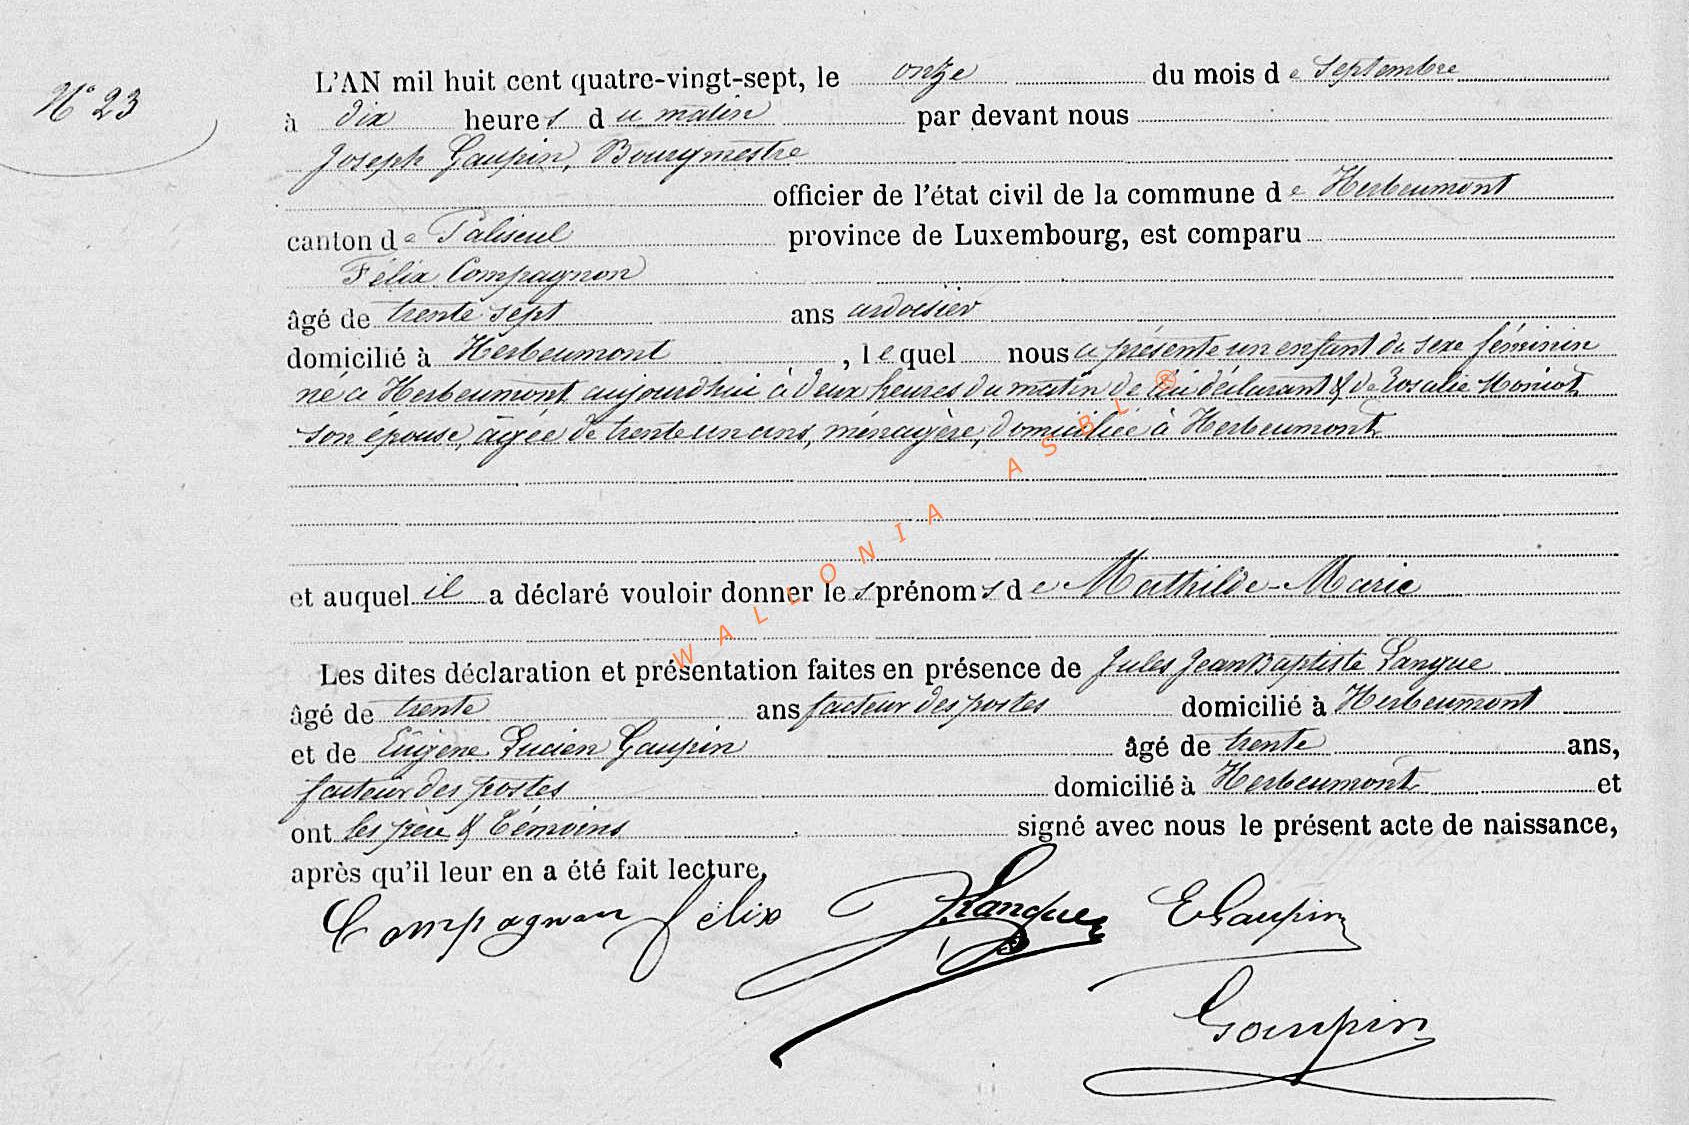 N° 23
L'AN mil huit cent quatre-vingt-sept, le onze du mois de Septembre
à dix heures du matin par devant nous
Joseph Gaupin, Bourgmestre
officier de l'état civil de la commune de Herbeumont
canton de Paliseul province de Luxembourg, est comparu
Félix Compagnon
âgé de trente sept ans ardoisier
domicilié à Herbeumont, lequel nous a présenté un enfant du sexe féminin
né à Herbeumont aujourd'hui à deux heures du matin de lui déclarant & de Rosalie Moniot
son épouse, âgée de trente un ans, ménagère, domiciliée à Herbeumont
et auquel il a déclaré vouloir donner les prénoms de Mathilde-Marie
Les dites déclaration et présentation faites en présence de Jules Jean Baptiste Langue
âgé de trente ans facteur des postes domicilié à Herbeumont
et de Eugène Lucien Gaupin âgé de trente ans,
facteur des postes domicilié à Herbeumont et
ont les père & témoins signé avec nous le présent acte de naissance,
après qu'il leur en a été fait lecture.
Compagnon félix JLangue EGaupin
Gaupin
WALLONIA ASBL ®